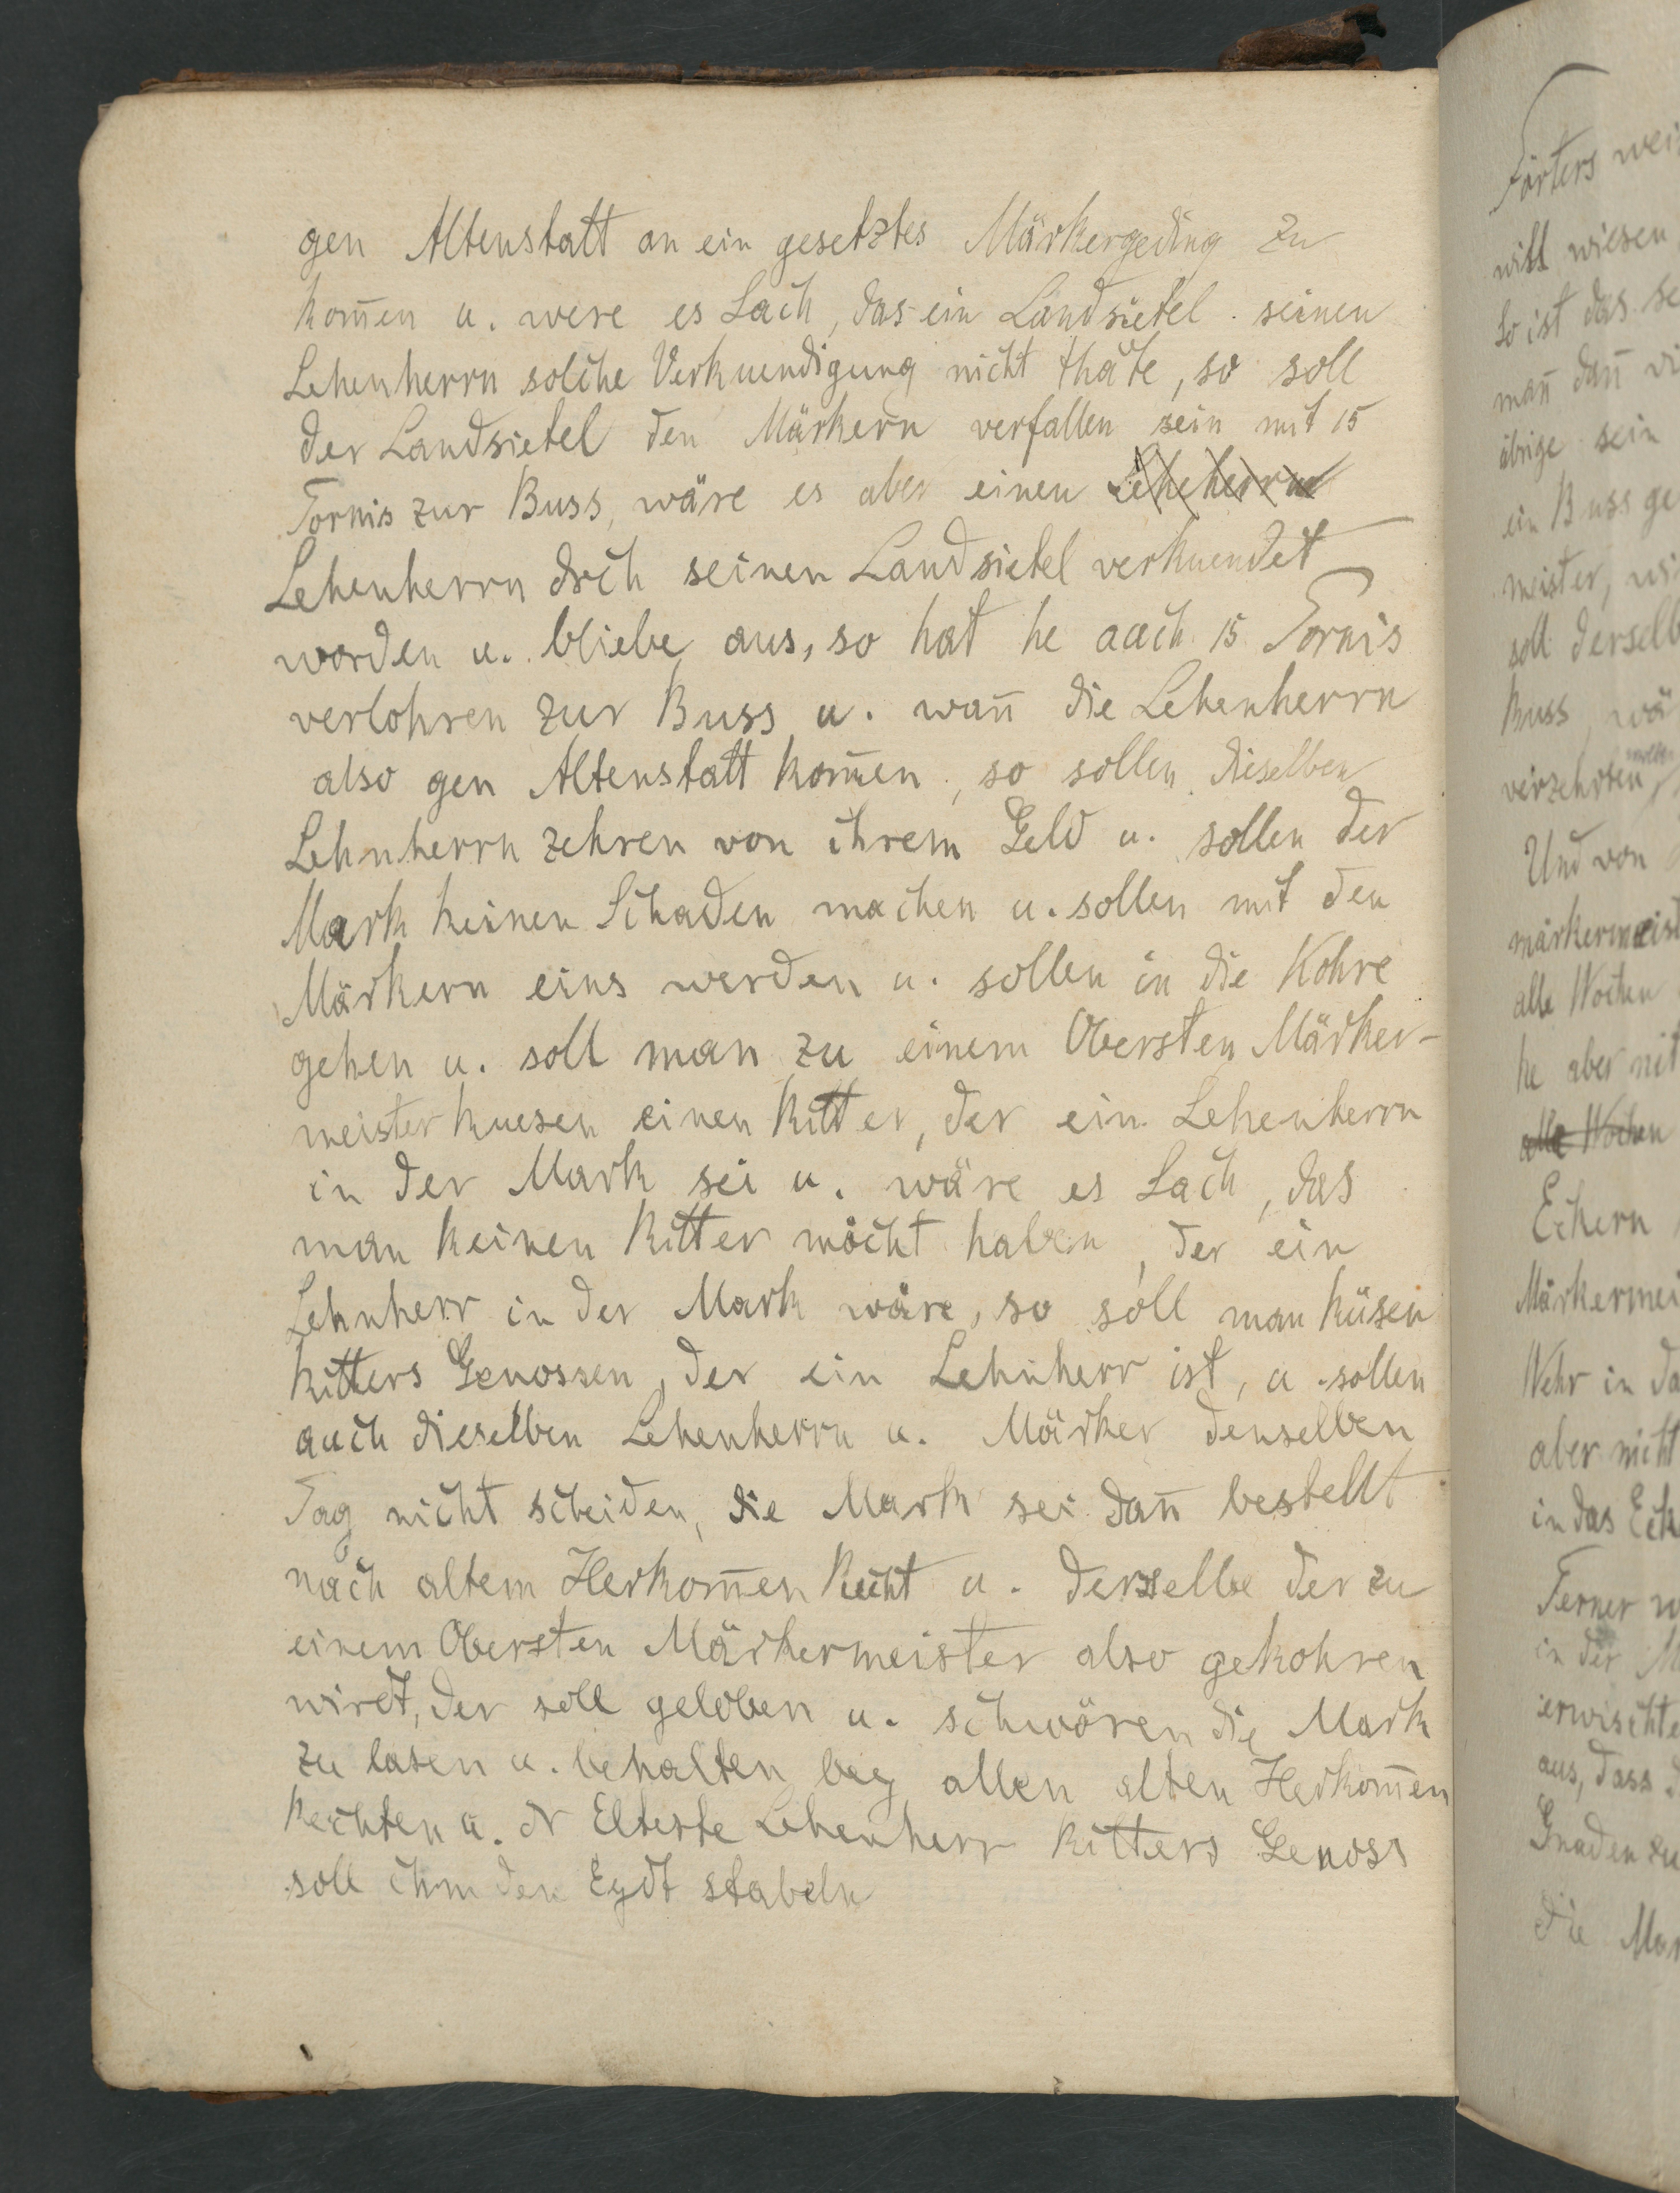 gen Altenstatt an ein gesetztes Märkergeding zu
kom̄en u. were es Sach, das ein Landsietel seinen
Lehenherrn solche Verkuendigung nicht thäte, so soll
der Landsietel den Märkern verfallen sein mit 15
Tornis zur Buss, wäre es aber einen Leheherrn
Lehenherrn drch seinen Landsietel verkuendet
worden u. bliebe aus, so hat he auch 15 Tornis
verlohren zur Buss u. wan̄ die Lehenherrn
also gen Altenstatt kom̄en, so sollen dieselben
Lehnherrn zehren von ihrem Geld u. sollen der
Mark keinen Schaden machen u. sollen mit den
Märkern eins werden u. sollen in die Kohre
gehen u. soll man zu einem Obersten Märker-
meister kuesen einen Ritter, der ein Lehenherrn
in der Mark sei u. wäre es Sach, das
man keinen Ritter möcht haben, der ein
Lehnherr in der Mark wäre, so soll man küsen
Ritters Genossen, der ein Lehnherr ist, u. sollen
auch dieselben Lehenherrn u. Märker denselben
Tag nicht scheiden, die Mark sei dan̄ bestellt
nach altem Herkom̄en Recht u. derselbe der zu
einem Obersten Märkermeister also gekohren
wirdt, der soll geloben u. schwören die Mark
zu lasen u. behalten bey allen alten Herkom̄en
Rechten u. dr Elteste Lehenherr Ritters Genoss
soll ihm den Eydt stabeln
Förters
will wiesen
so ist das
man̄ dan̄
übrige sein
ein Buss
meister,
soll
Buss
verzehrten
Und von
alle Wochen
he aber nit
alle Wochen
Eckern
Wehr in
aber nicht
in das
Ferner
in der
aus, dass
Gnaden zu
die